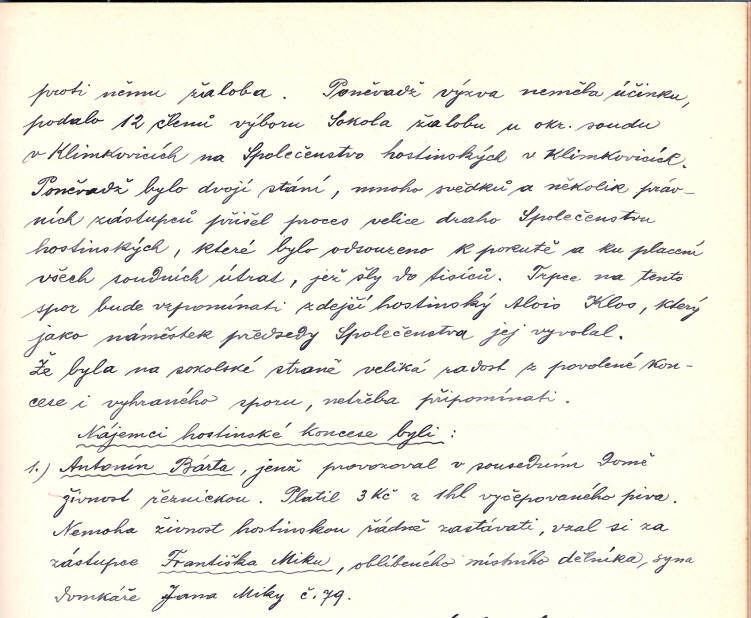 proti němu žaloba. Poněvadž výzva neměla účinku,
podalo 12 členů výboru Sokola žalobu u okr. soudu
v Klimkovicích na Společenstvo hostinských v Klimkovicích.
Poněvadž bylo dvojí stání, mnoho svědků a několik práv-
ních zástupců přišel proces velice draho Společenstvu
hostinských, které bylo odsouzeno k pokutě a ku placení
všech soudních útrat, jež šly do tisíců. Trpce na tento
spor bude vzpomínati zdejší hostinský Alois Klos, který
jako náměstek předsedy Společenstva jej vyvolal.
Že byla na sokolské straně veliká radost z povolené kon-
cese i vyhraného sporu, netřeba připomínati.
Nájemci hostinské koncese byli:
1.) Antonín Bárta, jenž provozoval v sousedním domě
živnost řeznickou. Platil 3 Kč z 1hl vyčepovaného piva.
Nemoha živnost hostinskou řádně zastávati, vzal si za
zástupce Františka Miku, oblíbeného místního dělníka, syna
domkáře Jana Miky č. 79.